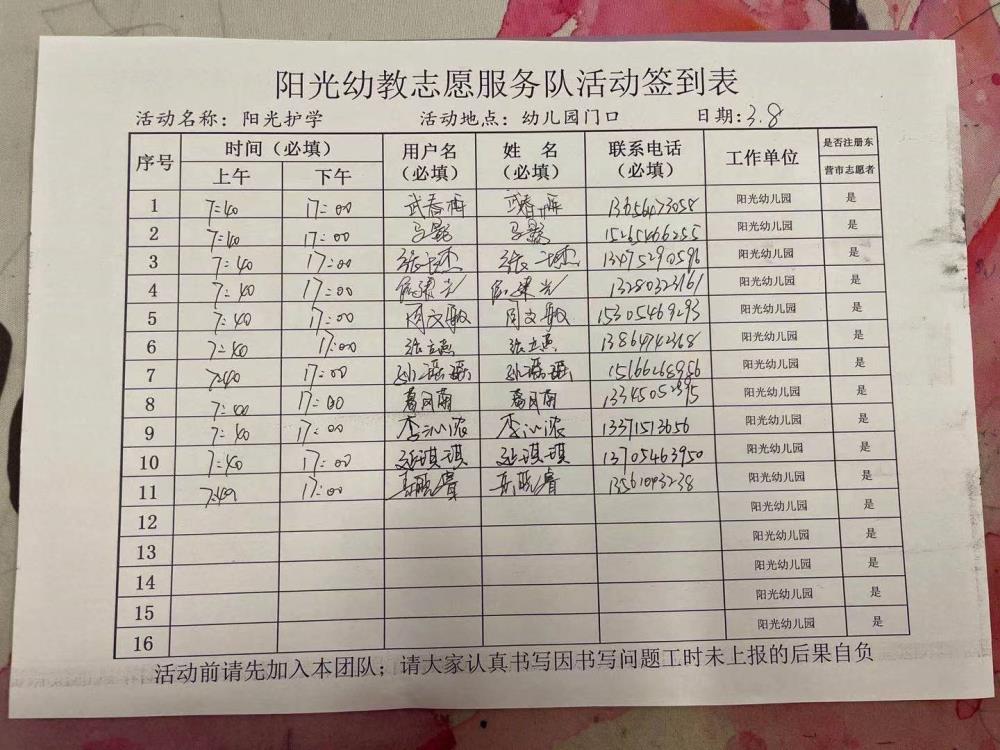 阳光幼教志愿服务队活动签到表
活动名称：阳光护学 活动地点：幼儿园门口 日期：3.8
序号 时间（必填） 用户名（必填） 姓 名（必填） 联系电话（必填） 工作单位 是否注册东营市志愿者
上午 下午
1 7:40 17:00 武春梅 武春梅 13656473058 阳光幼儿园 是
2 7:40 17:00 15265466255 阳光幼儿园 是
3 7:40 17:00 13475290596 阳光幼儿园 是
4 7:40 17:00 13280323161 阳光幼儿园 是
5 7:40 17:00 周文敏 周文敏 15305469293 阳光幼儿园 是
6 7:40 17:00 张立燕 张立燕 13864742368 阳光幼儿园 是
7 7:40 17:00 孙瑶瑶 孙瑶瑶 15166268956 阳光幼儿园 是
8 7:40 17:00 阳光幼儿园 是
9 7:40 17:00 李沁浓 李沁浓 13371513656 阳光幼儿园 是
10 7:40 17:00 赵琪琪 赵琪琪 13705463950 阳光幼儿园 是
11 7:40 17:00 阳光幼儿园 是
12 阳光幼儿园 是
13 阳光幼儿园 是
14 阳光幼儿园 是
15 阳光幼儿园 是
16
活动前请先加入本团队；请大家认真书写因书写问题工时未上报的后果自负